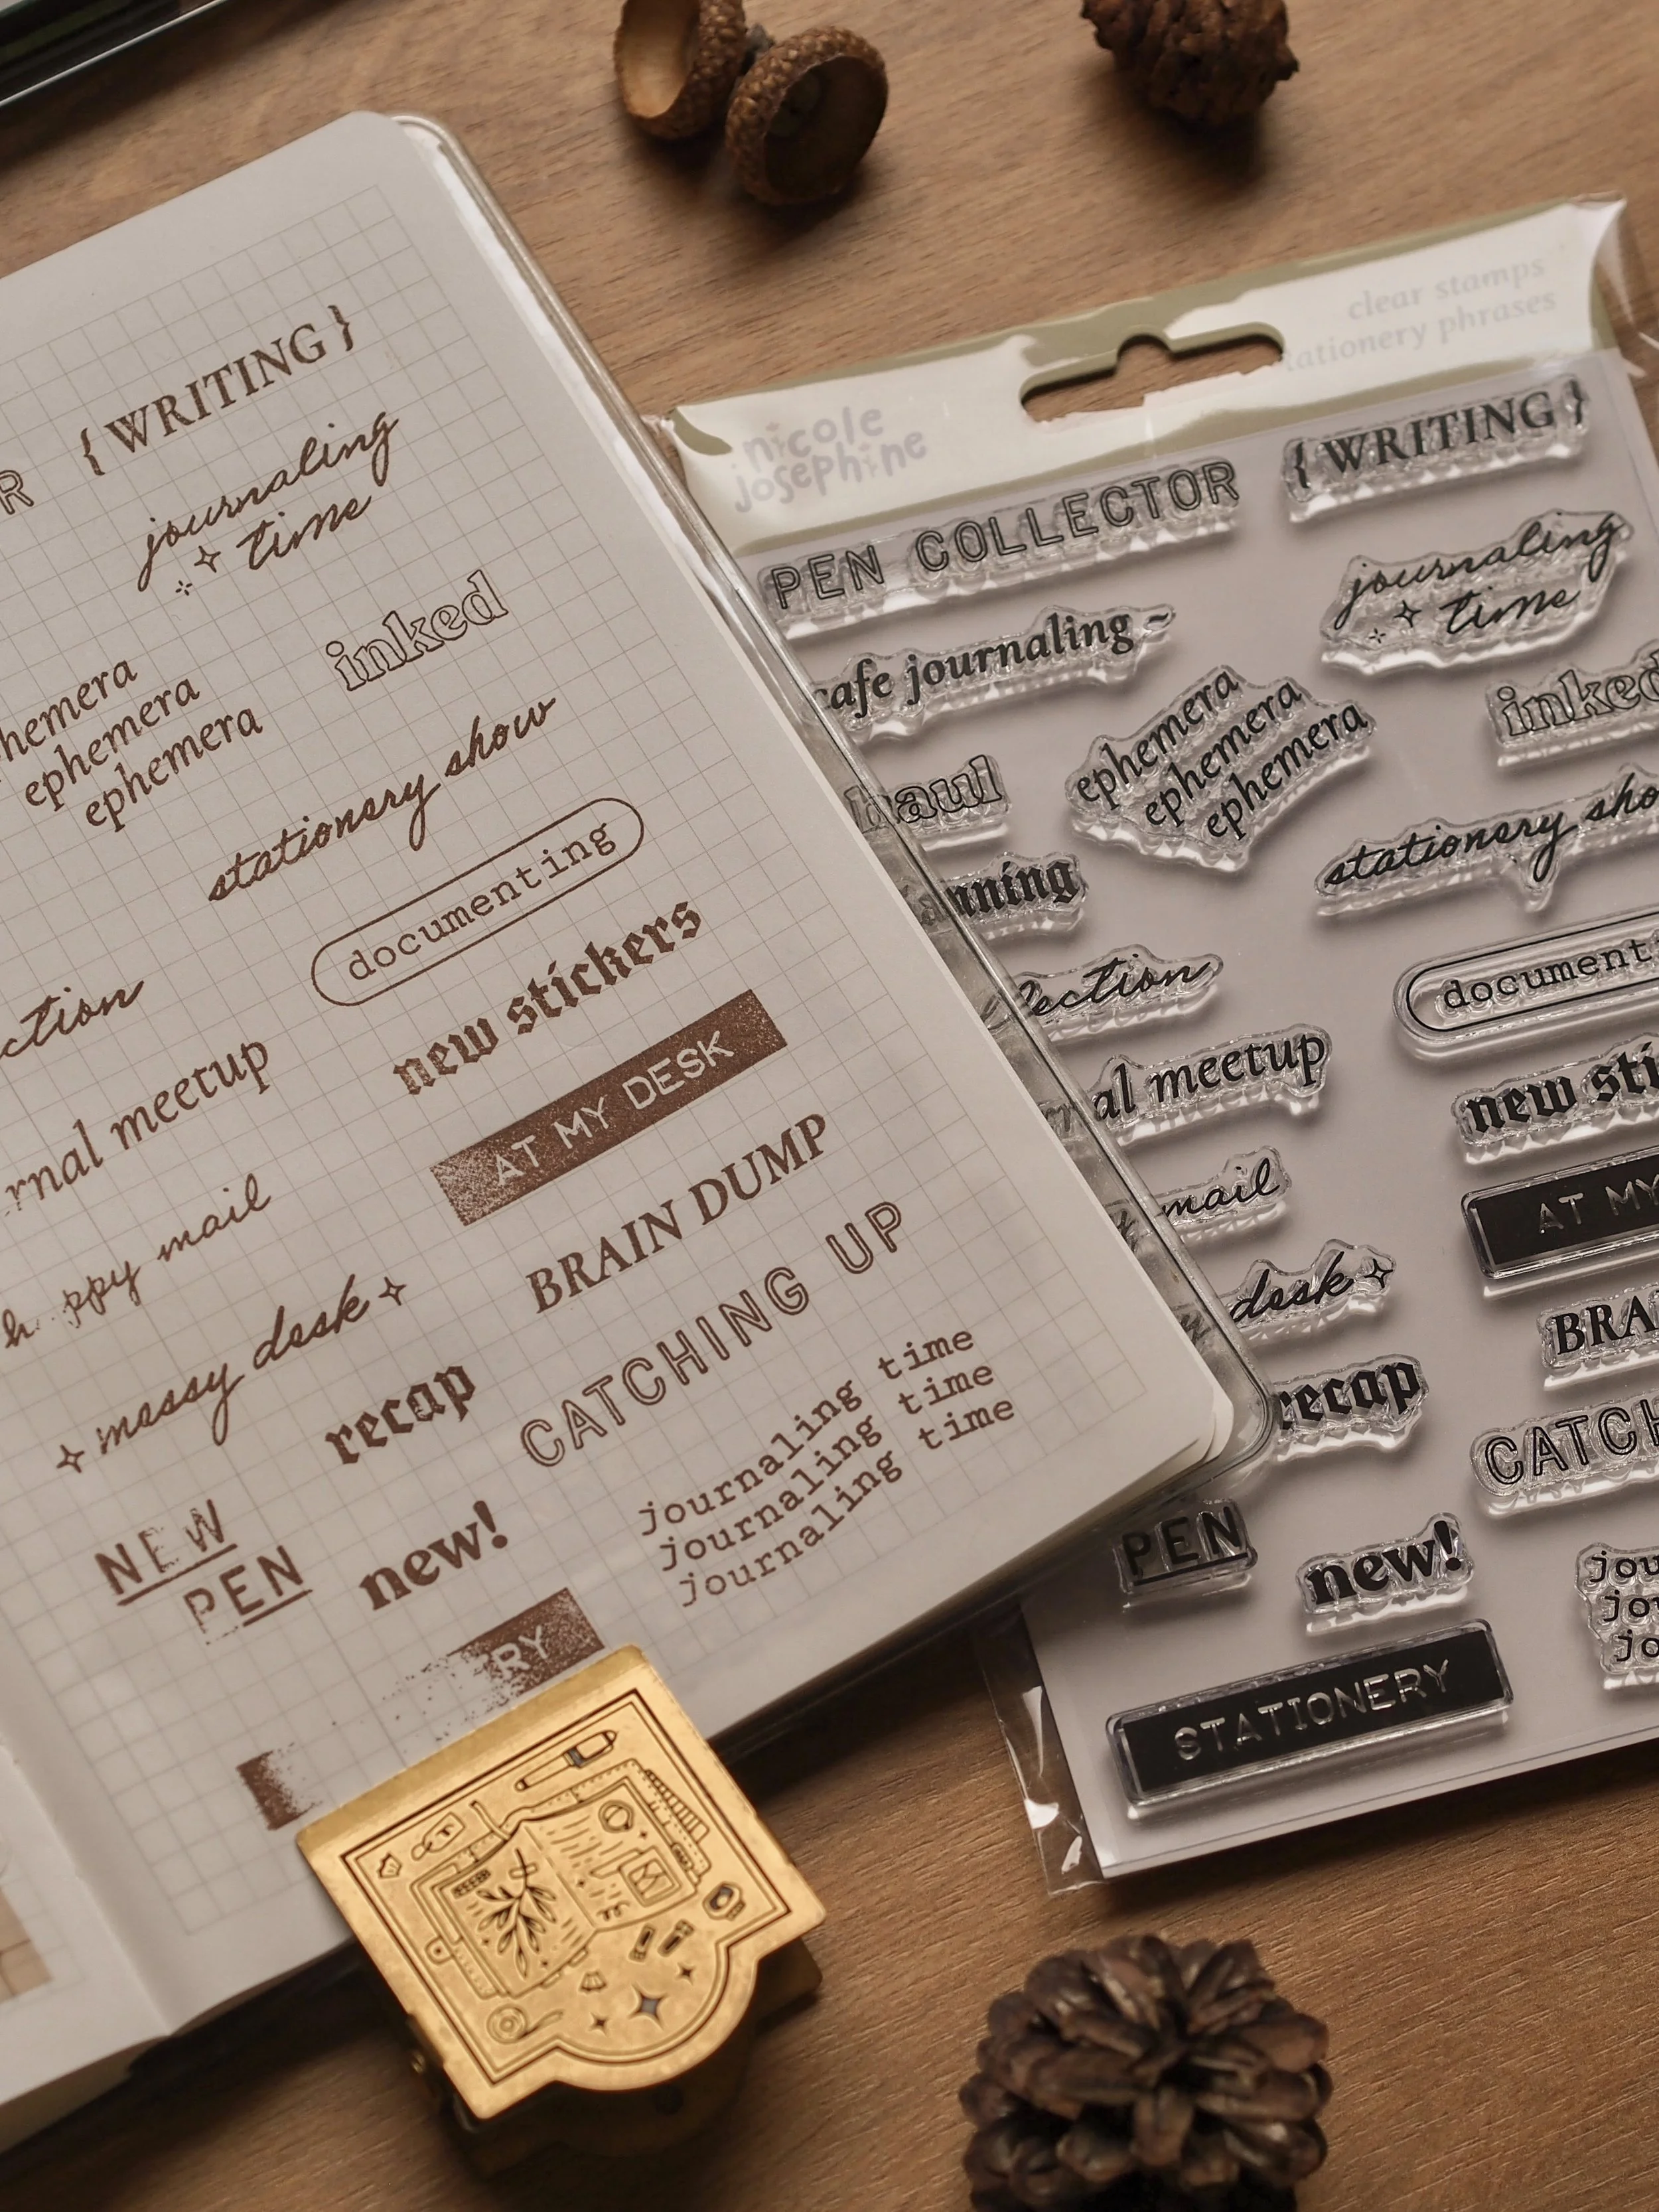 R
{ WRITING }
journaling
time
inked
ephemera
ephemera
stationery show
documenting
new stickers
AT MY DESK
meetup
mail
messy desk
BRAIN DUMP
recap
CATCHING UP
NEW
PEN
new!
journaling time
journaling time
journaling time
RY
nicole
josephine
clear stamps
phrases
PEN COLLECTOR
{ WRITING }
cafe journaling ~
journaling
time
ephemera
ephemera
ephemera
inked
haul
stationery sho
nning
documenti
al meetup
new sti
mail
AT MY
desk
BRA
recap
CATCH
PEN
new!
jou
jou
jo
STATIONERY